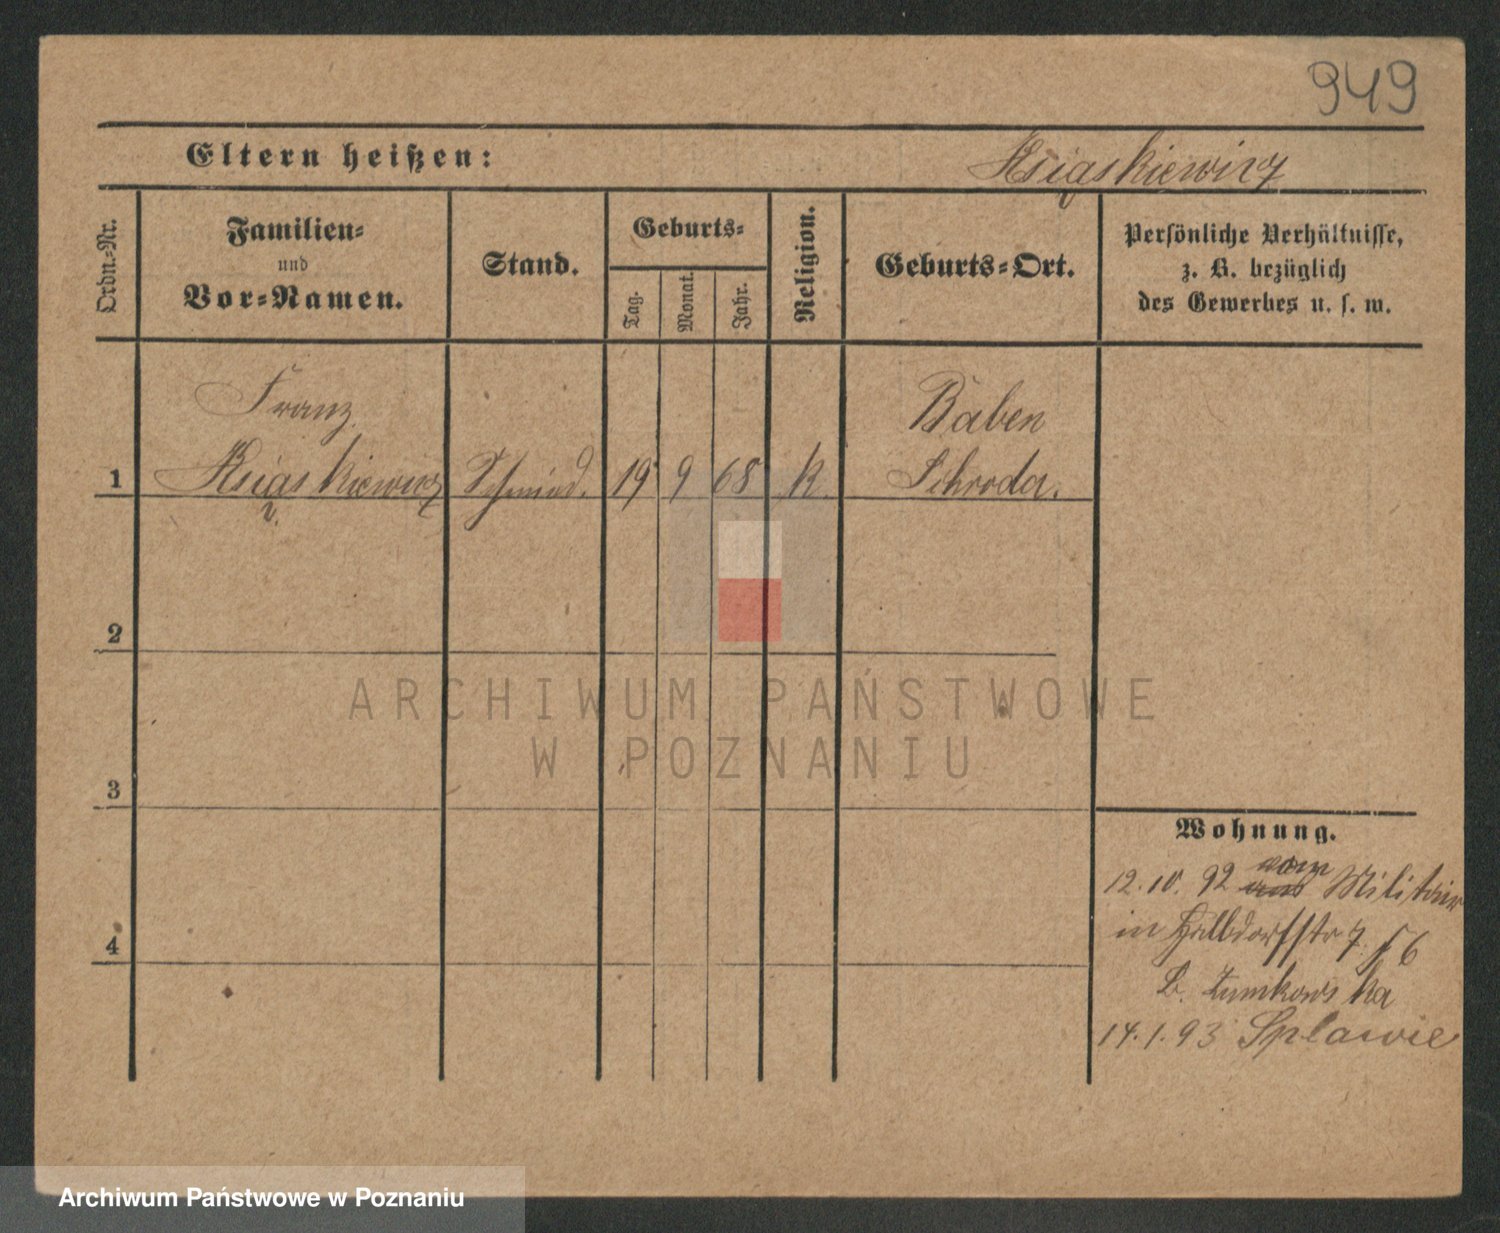 949
Eltern heißen:
Ksiąskiewicz
Ordn.-Nr.
Familien-
und
Vor-Namen.
Stand.
Geburts-
Tag.
Monat.
Jahr.
Religion.
Geburts-Ort.
Persönliche Verhältnisse,
z. B. bezüglich
des Gewerbes u. s. w.
Franz
Baben
1 Ksiąskiewicz Schmied. 19 9 68 K. Schroda.
2
3
4
Wohnung.
12.10.92 vom Militair
in Halbdorfstr 7
14.1.93 Splawie
ARCHIWUM PAŃSTWOWE
W POZNANIU
Archiwum Państwowe w Poznaniu